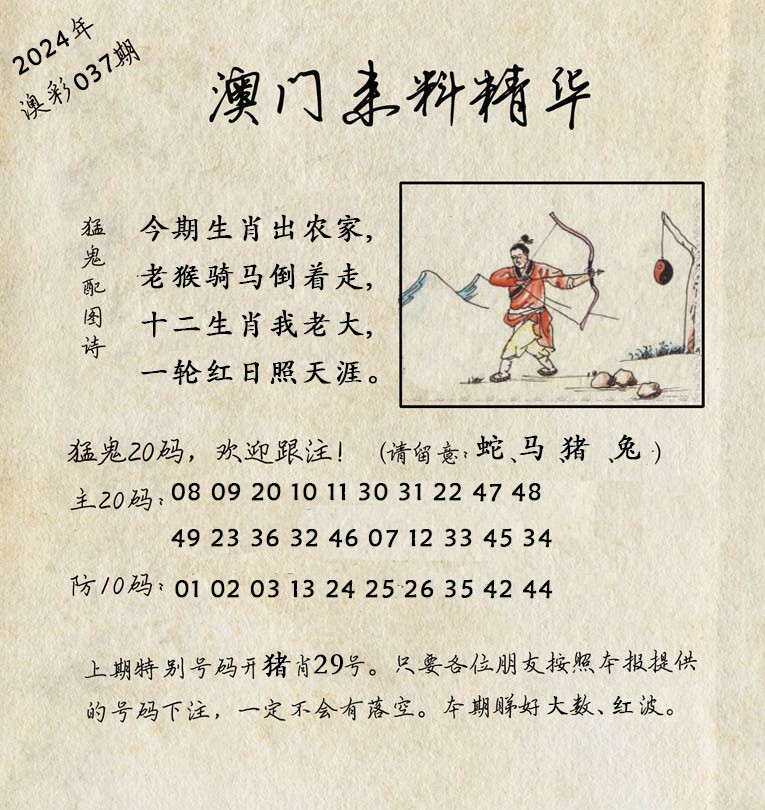 2024年
澳彩037期
澳门来料精华
猛鬼配图诗
今期生肖出农家，
老猴骑马倒着走，
十二生肖我老大，
一轮红日照天涯。
猛鬼20码，欢迎跟注！（请留意：蛇、马、猪、兔）
主20码：08 09 20 10 11 30 31 22 47 48
49 23 36 32 46 07 12 33 45 34
防10码：01 02 03 13 24 25 26 35 42 44
上期特别号码开猪肖29号。只要各位朋友按照本报提供
的号码下注，一定不会有落空。本期睇好大数、红波。